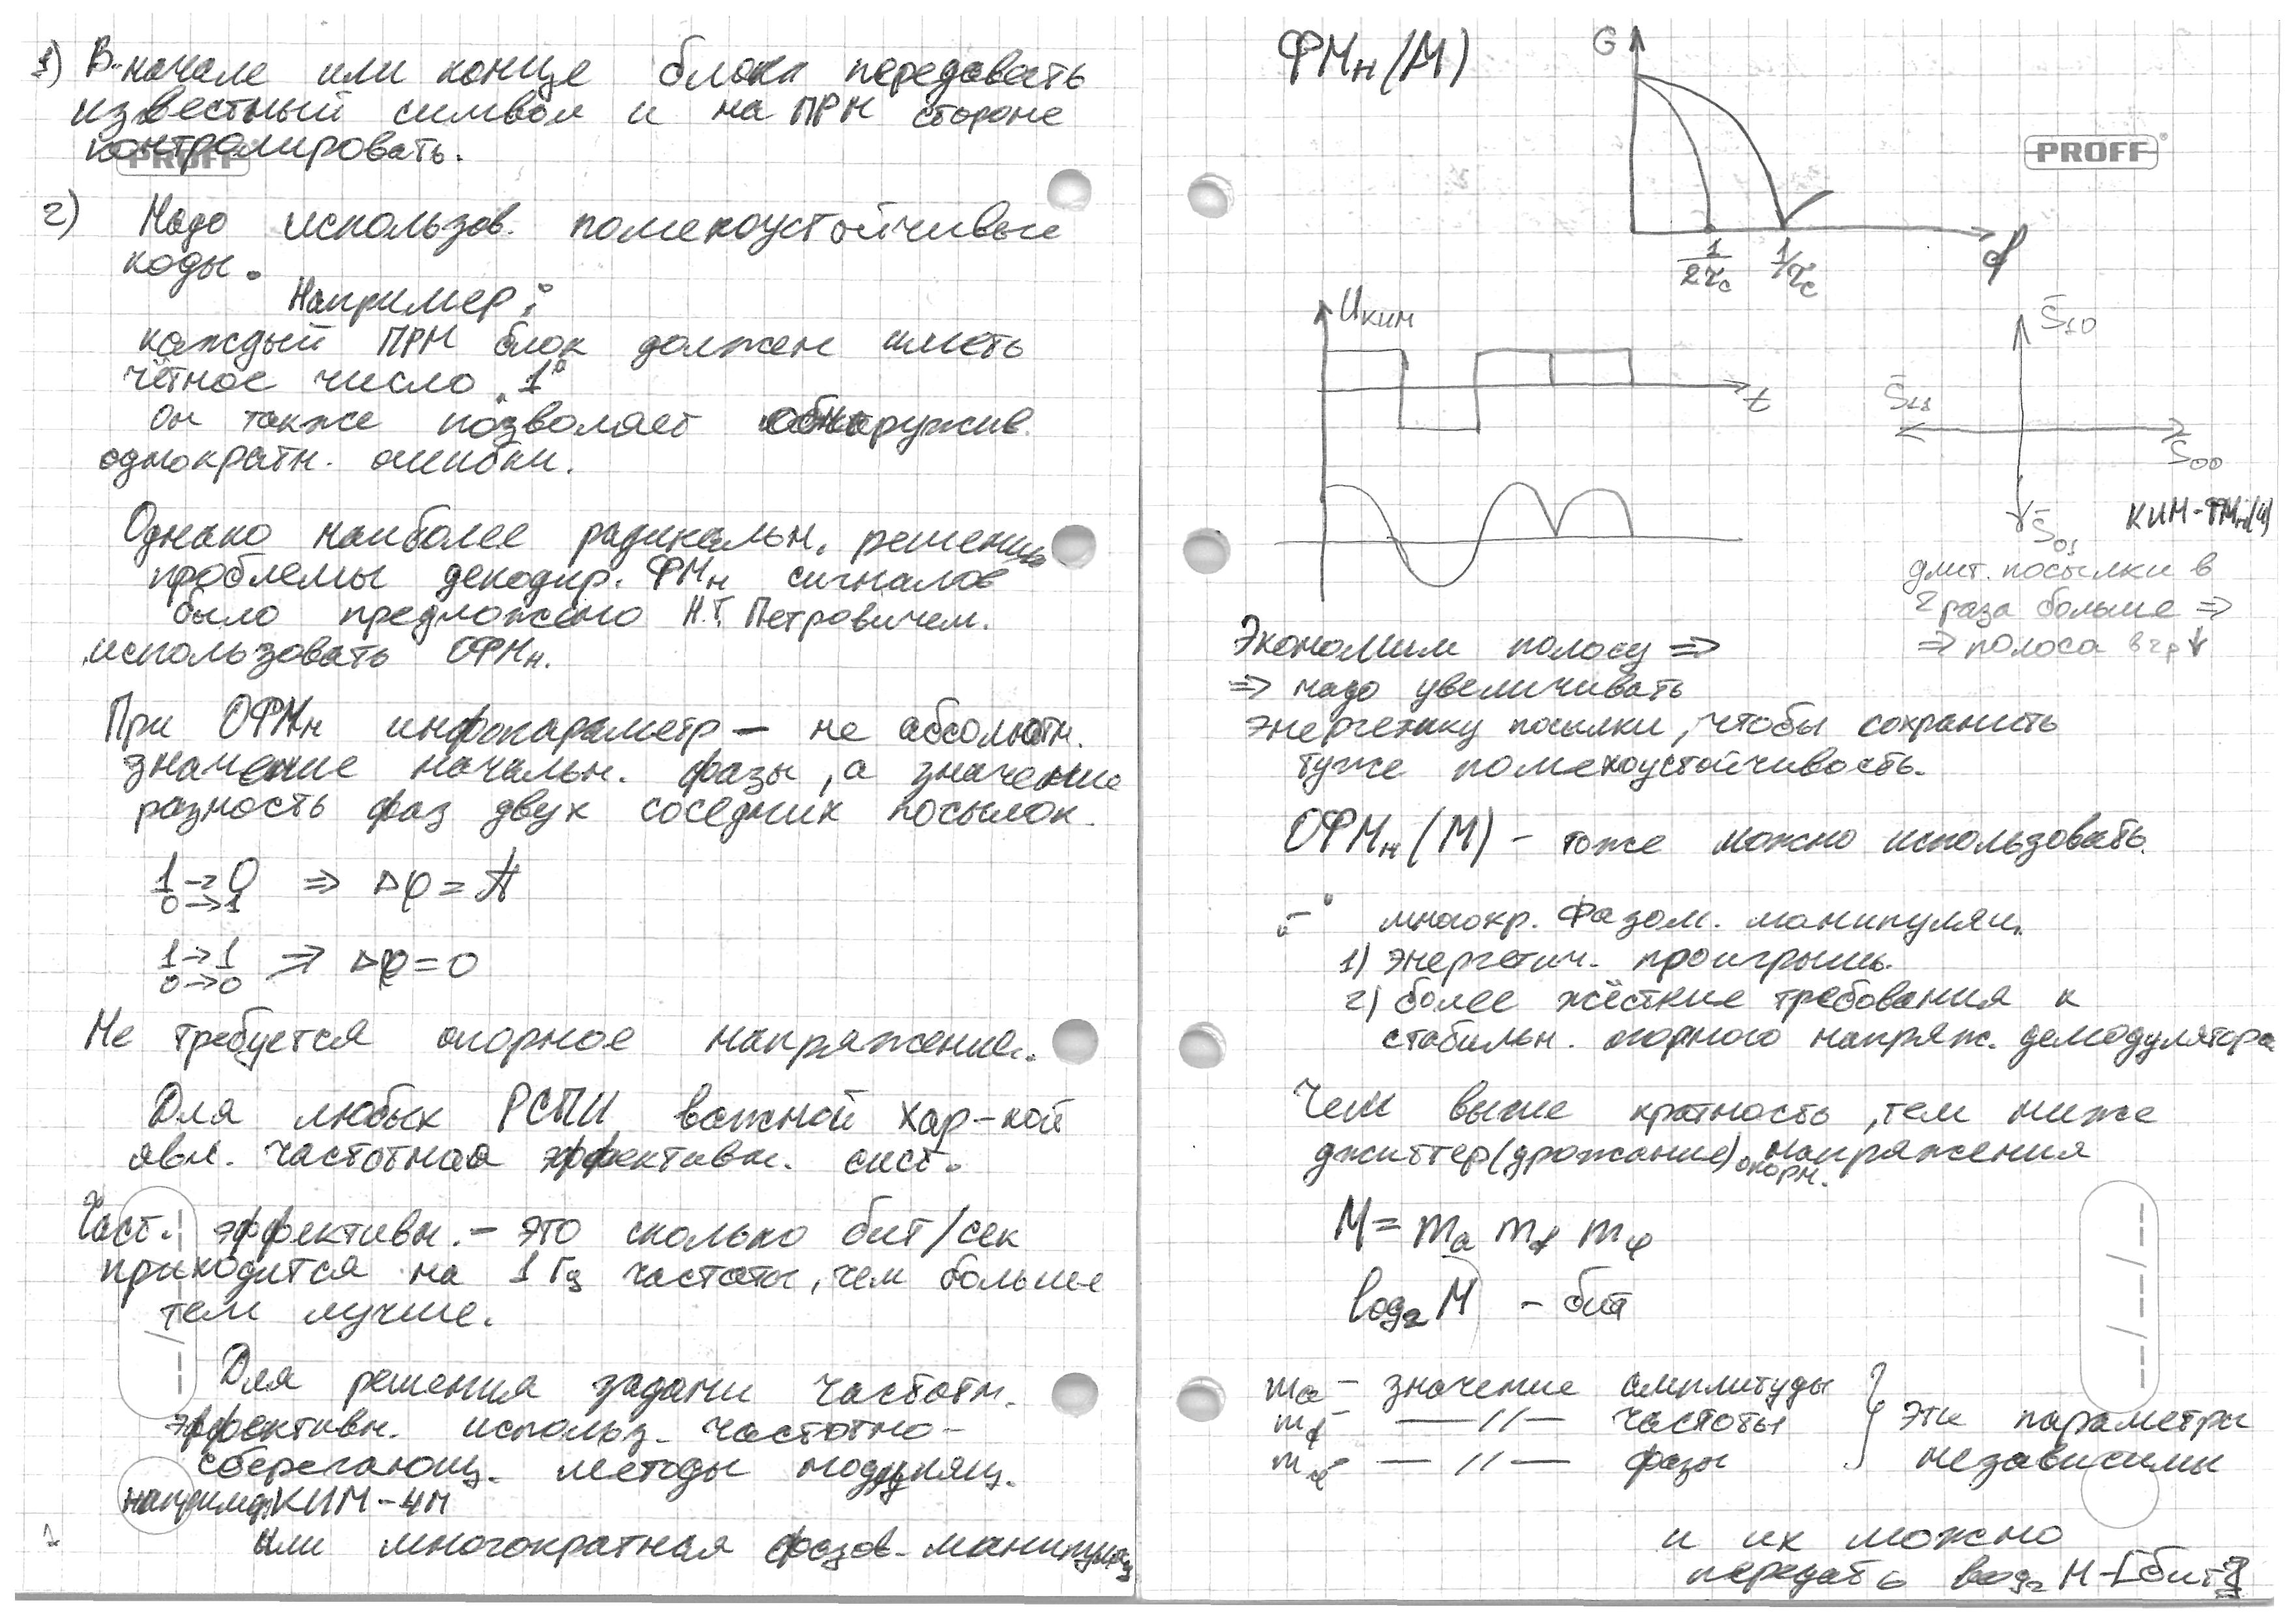 1) В начале или конце блока передавать
известный символ и на ПРМ стороне
контролировать.
PROFF
2) Надо использов. помехоустойчивые
коды.
Например:
каждый ПРМ блок должен иметь
чётное число "1"
Он также позволяет обнаружив.
однократн. ошибки.
Однако наиболее радикальн. решение
проблемы декодир. ФМн сигналов
было предложено Н.Т. Петровичем.
использовать ОФМн.
При ОФМн инфопараметр – не абсолютн.
значение начальн. фазы, а значение
разность фаз двух соседних посылок.
1→0 ⇒ Δφ = π
0→1
1→1 ⇒ Δφ = 0
0→0
Не требуется опорное напряжение.
Для любых РСПИ важной хар-кой
явл. частотная эффективн. сист.
Част. эффективн. – это сколько бит/сек
приходится на 1 Гц частоты, чем больше
тем лучше.
Для решения задачи частотн.
эффективн. использ. частотно-
сберегающ. методы модуляц.
например КИМ-ЧМ
или многократная фазов. манипуляц
ФМн (М)
G
PROFF
1/2τc 1/τc f
Uким
t
S10
S11
S00
S01
КИМ-ФМн(4)
длит. посылки в
2 раза больше ⇒
⇒ полоса в 2р ↓
Экономим полосу ⇒
⇒ надо увеличивать
энергетику посылки, чтобы сохранить
туже помехоустойчивость.
ОФМн (М) – тоже можно использовать.
"–" многокр. фазом. манипуляц.
1) энергетич. проигрышь.
2) более жёсткие требования к
стабильн. опорного напряж. демодулятора
Чем выше кратность, тем ниже
джиттер (дрожание) опорн. напряжения
M = ma mf mφ
log2 M – бит
ma – значение амплитуды
mf – —//— частоты
mφ – —//— фазы
} эти параметры
независимы
и их можно
передать log2 M – [бит]